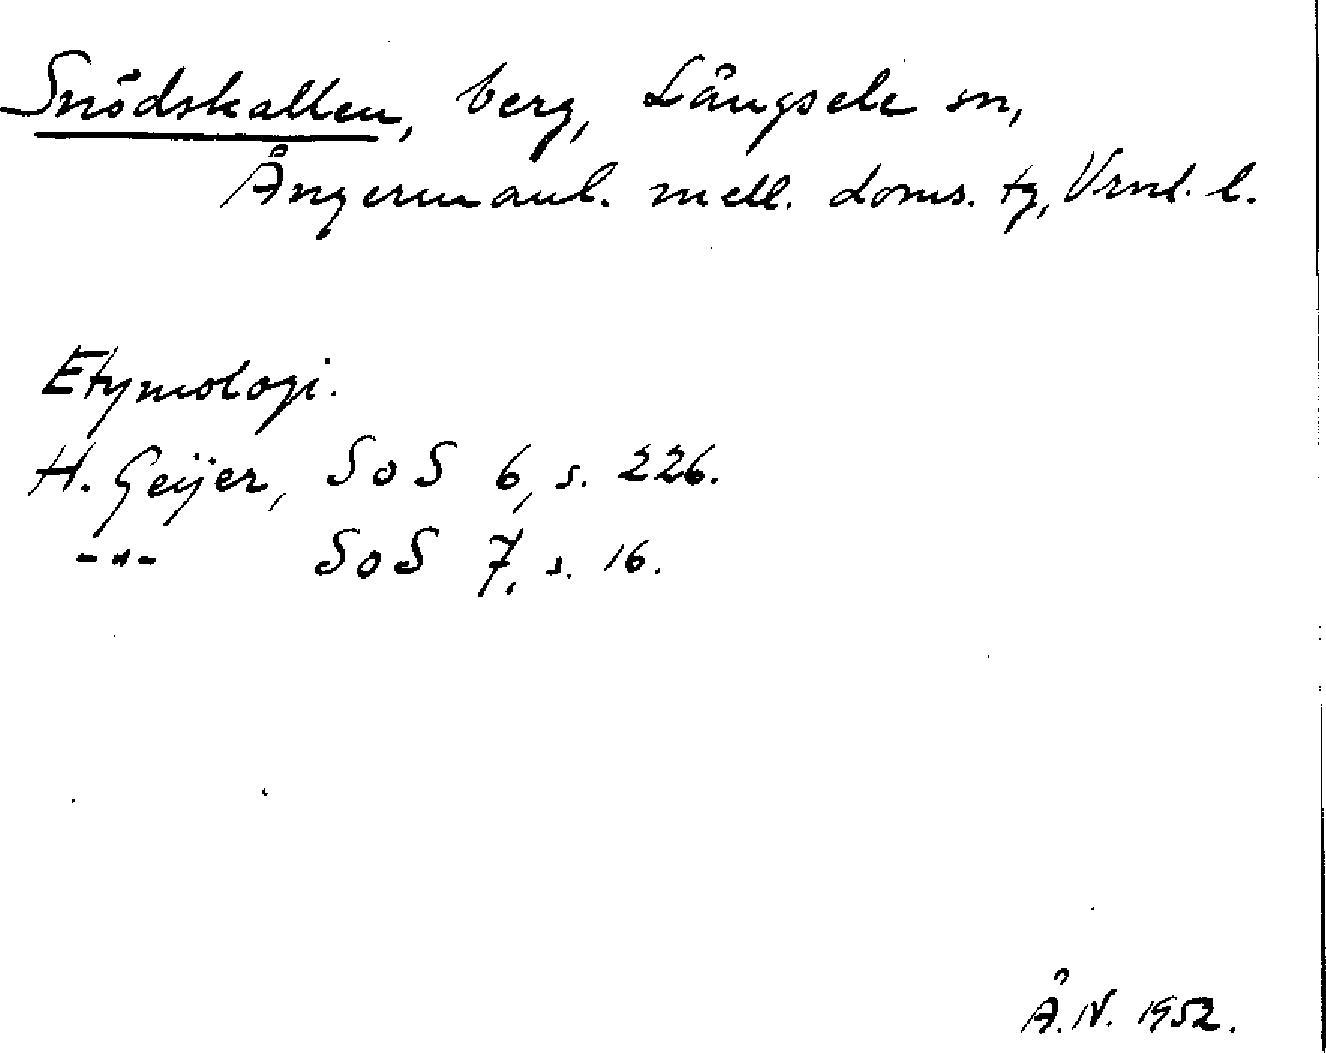 Snödskallen, berg, Långsele sn,
Ångermanl. mell. doms. tg, Vrnl. l.
Etymologi.
H. Geijer, SoS 6, s. 226.
-"- SoS 7, s. 16.
Å.N. 1952.